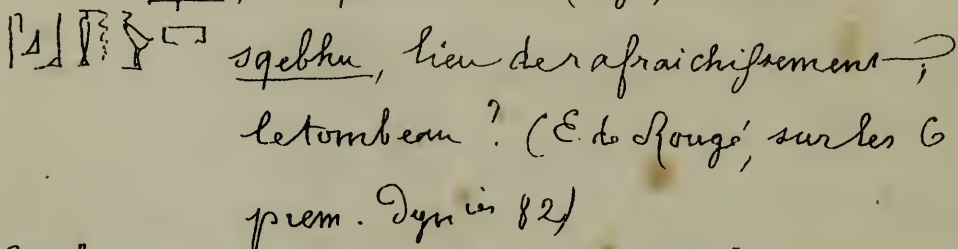 sqebhu, lieu de rafraichissement?
le tombeau? (E. de Rougé, sur les 6
prem. Dyn ies 82)